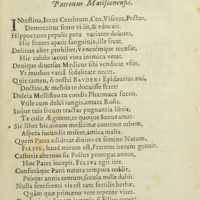 Patronus Matisconensis.
INtestina, Iecur, Cerebrum, Cor, Viscera, Pectus,
Democritus ferro vidit, & eduocuit.
Hippocrates populi potu variante dolores,
Hic fontes aperit sanguinis, ille secat.
Delinit alter prohibet, Venerémque recusat,
Hic calido iocori vina inimica putat.
Denique diuersus Medicus sibi vendicat vsus,
Vt morbos varia sedulitate necet.
Quis tamen, ô nostri BAVDERI Epidaurius æui,
Doctius, & melius te docuisse feret?
Dulcia Mellistuo tu condis Pharmaca succo,
Vtile cum dulci iungis, amara Rosis.
Inque tuis succum tractas pugnantia libris,
Te colit Ægrotus, te quoque Sanus amat.
Sic liber hic, totum medicinæ continet orbem,
Aspera iucundis miscet, amica malis.
Quem Pater ediderat diuino ex semine Natum,
FILIVS, haud mirum est, Fratrem iterum genuit.
Castoris alternos sic Pollux prorogat annos,
Hoc peperit Pater, FILIVS ergo dedit.
Consuináque Parti natura tempora reddit,
Próque annis centum, sæcula mille dabit.
Nulla senescenti vis est tam fertilis herbæ,
Quàm quæ produxit gramina, semen erit.